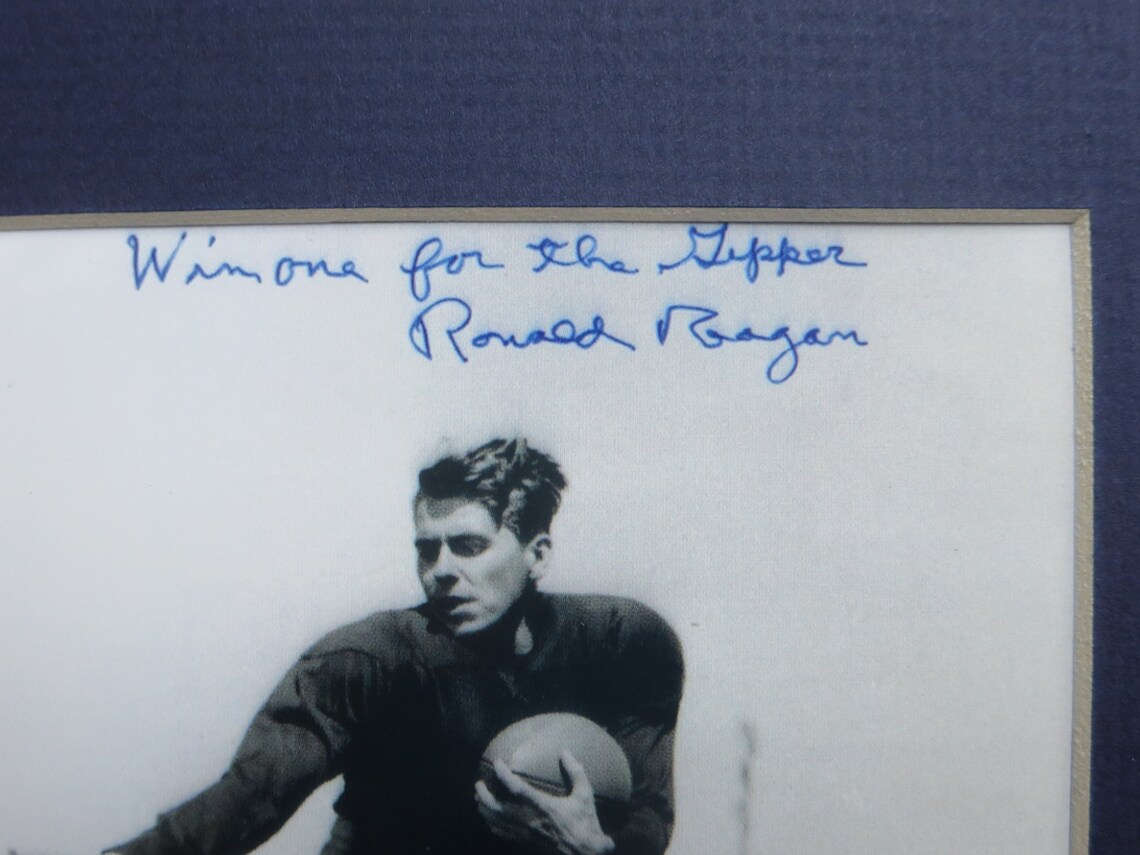 Win one for the Gipper
Ronald Reagan